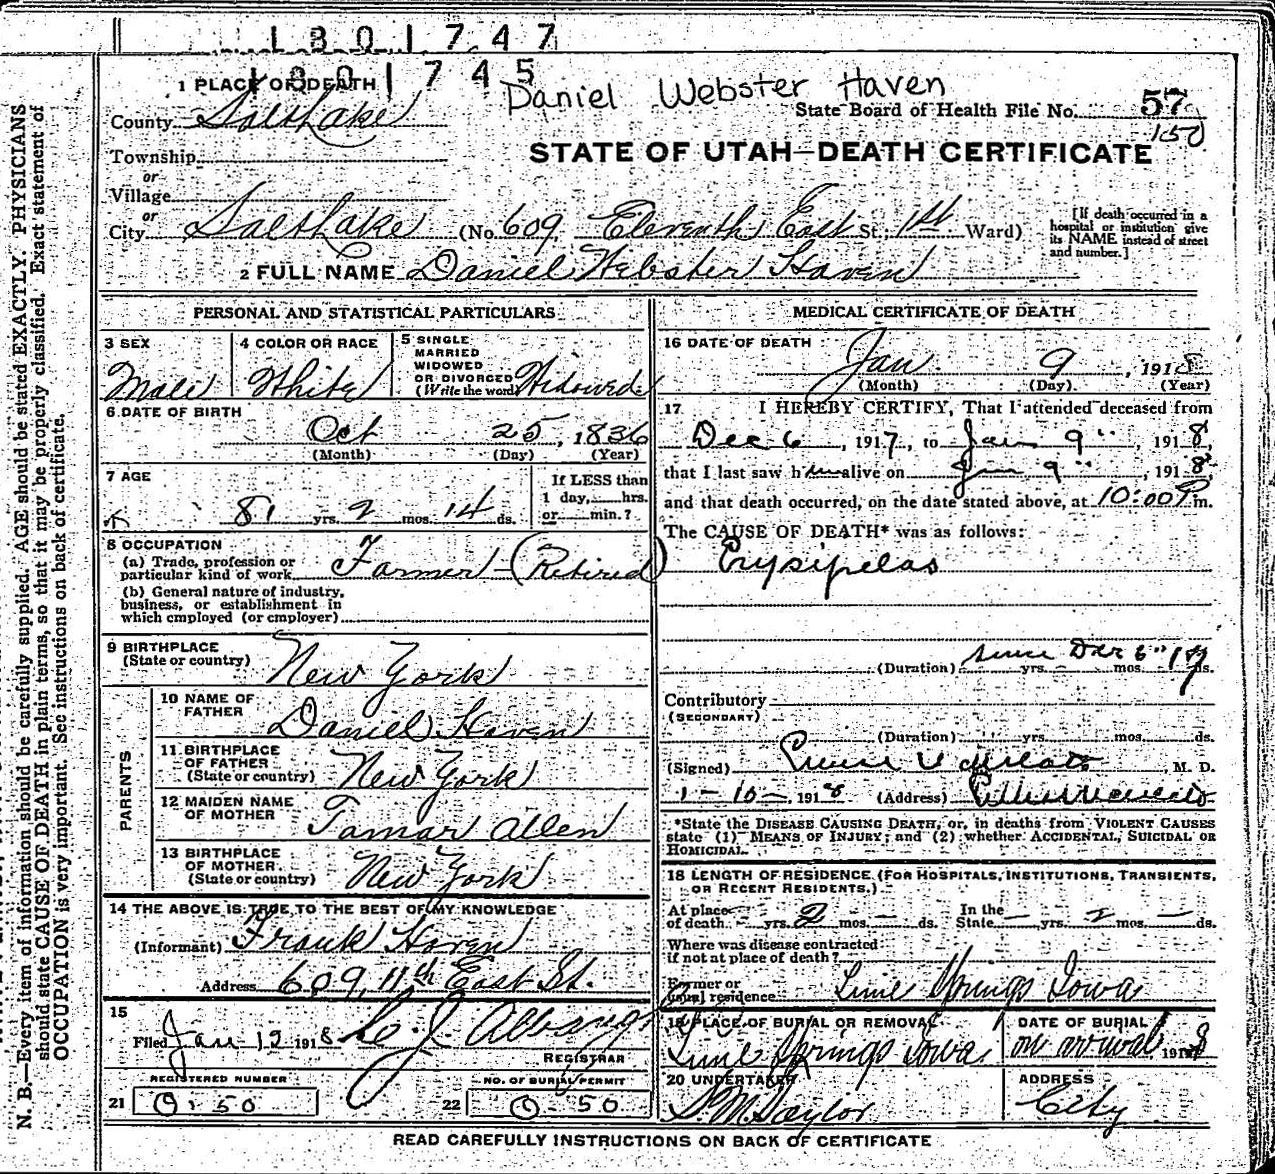 1301747
1301745
Daniel Webster Haven
1 PLACE OF DEATH
State Board of Health File No. 57
150
County Salt Lake
STATE OF UTAH—DEATH CERTIFICATE
Township
or
Village
or
City Salt Lake (No. 609, Eleventh East St. 1st Ward)
[If death occurred in a hospital or institution give its NAME instead of street and number.]
2 FULL NAME Daniel Webster Haven
PERSONAL AND STATISTICAL PARTICULARS
3 SEX
Male
4 COLOR OR RACE
White
5 SINGLE
MARRIED
WIDOWED
OR DIVORCED
(Write the word) Widowed
6 DATE OF BIRTH
Oct 25, 1836
(Month) (Day) (Year)
7 AGE
81 yrs. 2 mos. 14 ds.
If LESS than
1 day, hrs.
or min.?
8 OCCUPATION
(a) Trade, profession or
particular kind of work Farmer - (Retired)
(b) General nature of industry,
business, or establishment in
which employed (or employer)
9 BIRTHPLACE
(State or country) New York
PARENTS
10 NAME OF
FATHER Daniel Haven
11 BIRTHPLACE
OF FATHER
(State or country) New York
12 MAIDEN NAME
OF MOTHER Tamar Allen
13 BIRTHPLACE
OF MOTHER
(State or country) New York
14 THE ABOVE IS TRUE TO THE BEST OF MY KNOWLEDGE
(Informant) Frank Haven
Address 609, 11th East St.
15
Filed Jan 12 1918
REGISTRAR
REGISTERED NUMBER
21 0-50
NO. OF BURIAL PERMIT
22 0-50
MEDICAL CERTIFICATE OF DEATH
16 DATE OF DEATH
Jan 9, 1918
(Month) (Day) (Year)
17 I HEREBY CERTIFY, That I attended deceased from
Dec 6, 1917, to Jan 9", 1918,
that I last saw him alive on Jan 9", 1918
and that death occurred, on the date stated above, at 10:00 P m.
The CAUSE OF DEATH* was as follows:
Erysipelas
(Duration) since Dec 6" 17 yrs. mos. ds.
Contributory
(SECONDARY)
(Duration) yrs. mos. ds.
(Signed) , M. D.
1-10-, 1918 (Address)
*State the DISEASE CAUSING DEATH, or, in deaths from VIOLENT CAUSES
state (1) MEANS OF INJURY; and (2) whether ACCIDENTAL, SUICIDAL OR
HOMICIDAL.
18 LENGTH OF RESIDENCE (FOR HOSPITALS, INSTITUTIONS, TRANSIENTS,
OR RECENT RESIDENTS.)
At place
of death — yrs. 2 mos. — ds. In the
State — yrs. 2 mos. — ds.
Where was disease contracted
if not at place of death?
Former or
usual residence Lime Springs Iowa
19 PLACE OF BURIAL OR REMOVAL
Lime Springs Iowa
DATE OF BURIAL
on arrival 1918
20 UNDERTAKER
S. M. Taylor
ADDRESS
City
READ CAREFULLY INSTRUCTIONS ON BACK OF CERTIFICATE
N. B.—Every item of information should be carefully supplied. AGE should be stated EXACTLY. PHYSICIANS
should state CAUSE OF DEATH in plain terms, so that it may be properly classified. Exact statement of
OCCUPATION is very important. See instructions on back of certificate.